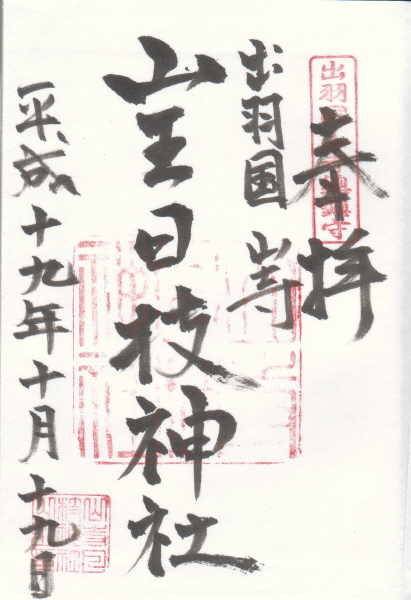 奉拝
出羽国 山寺
山王日枝神社
平成十九年十月十九日